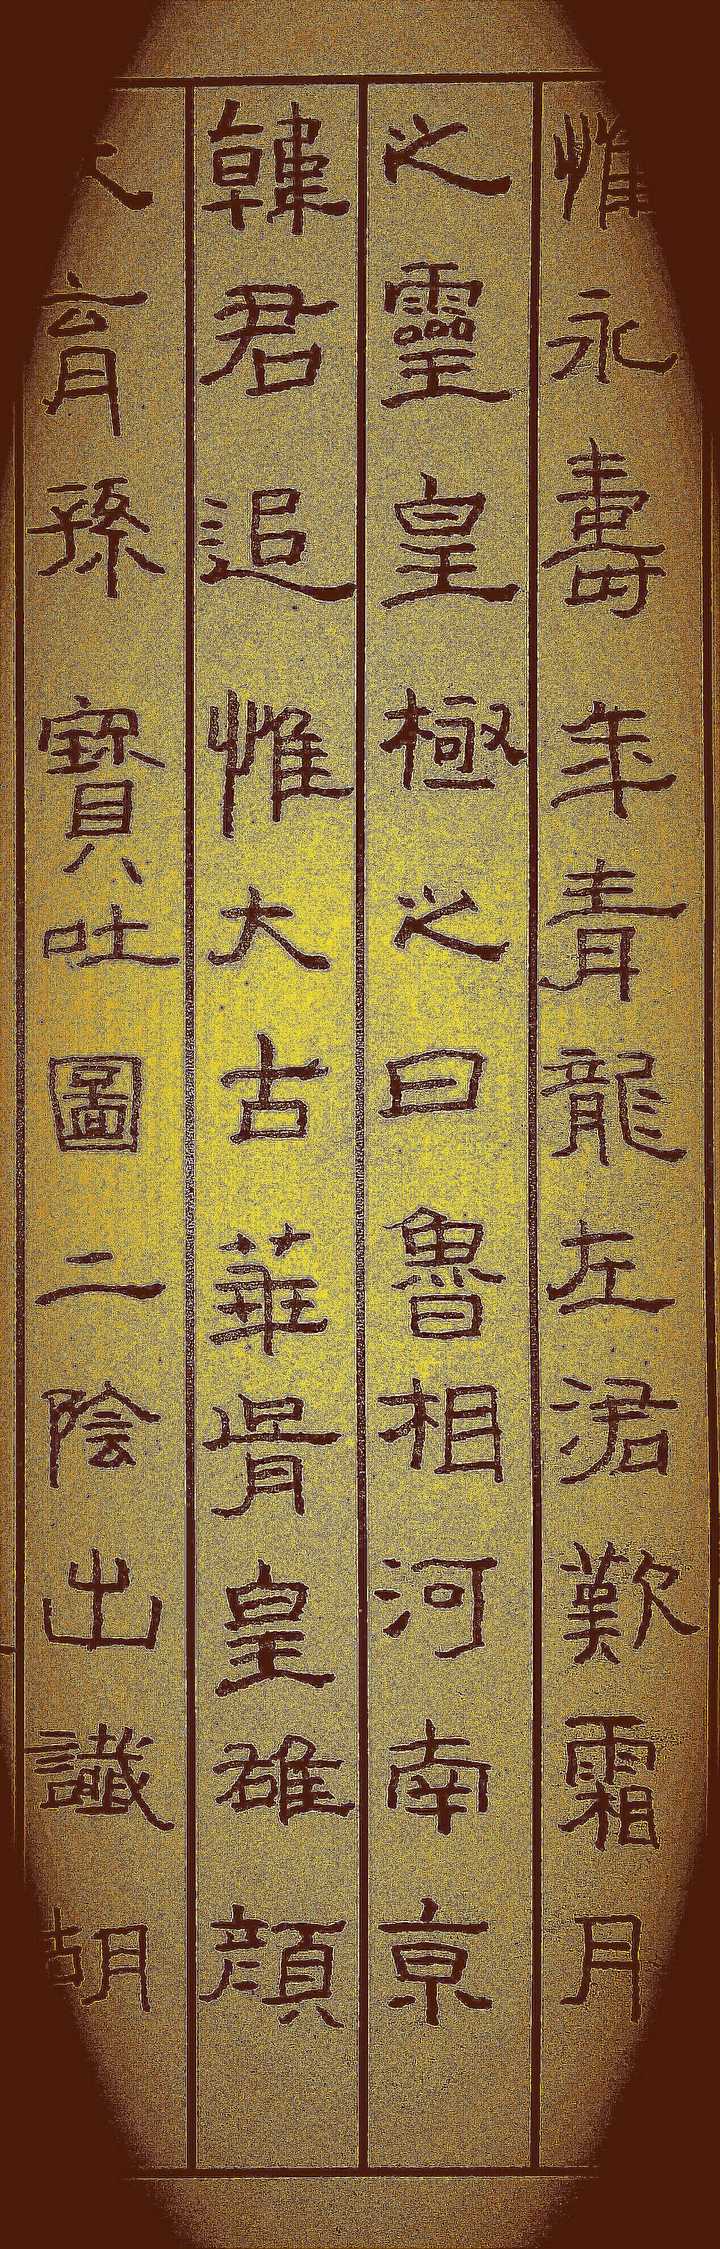 惟永壽年青龍左涒歎霜月
之靈皇極之日魯相河南京
韓君追惟大古華胥皇雄顏
育孫寶吐圖二陰出讖胡